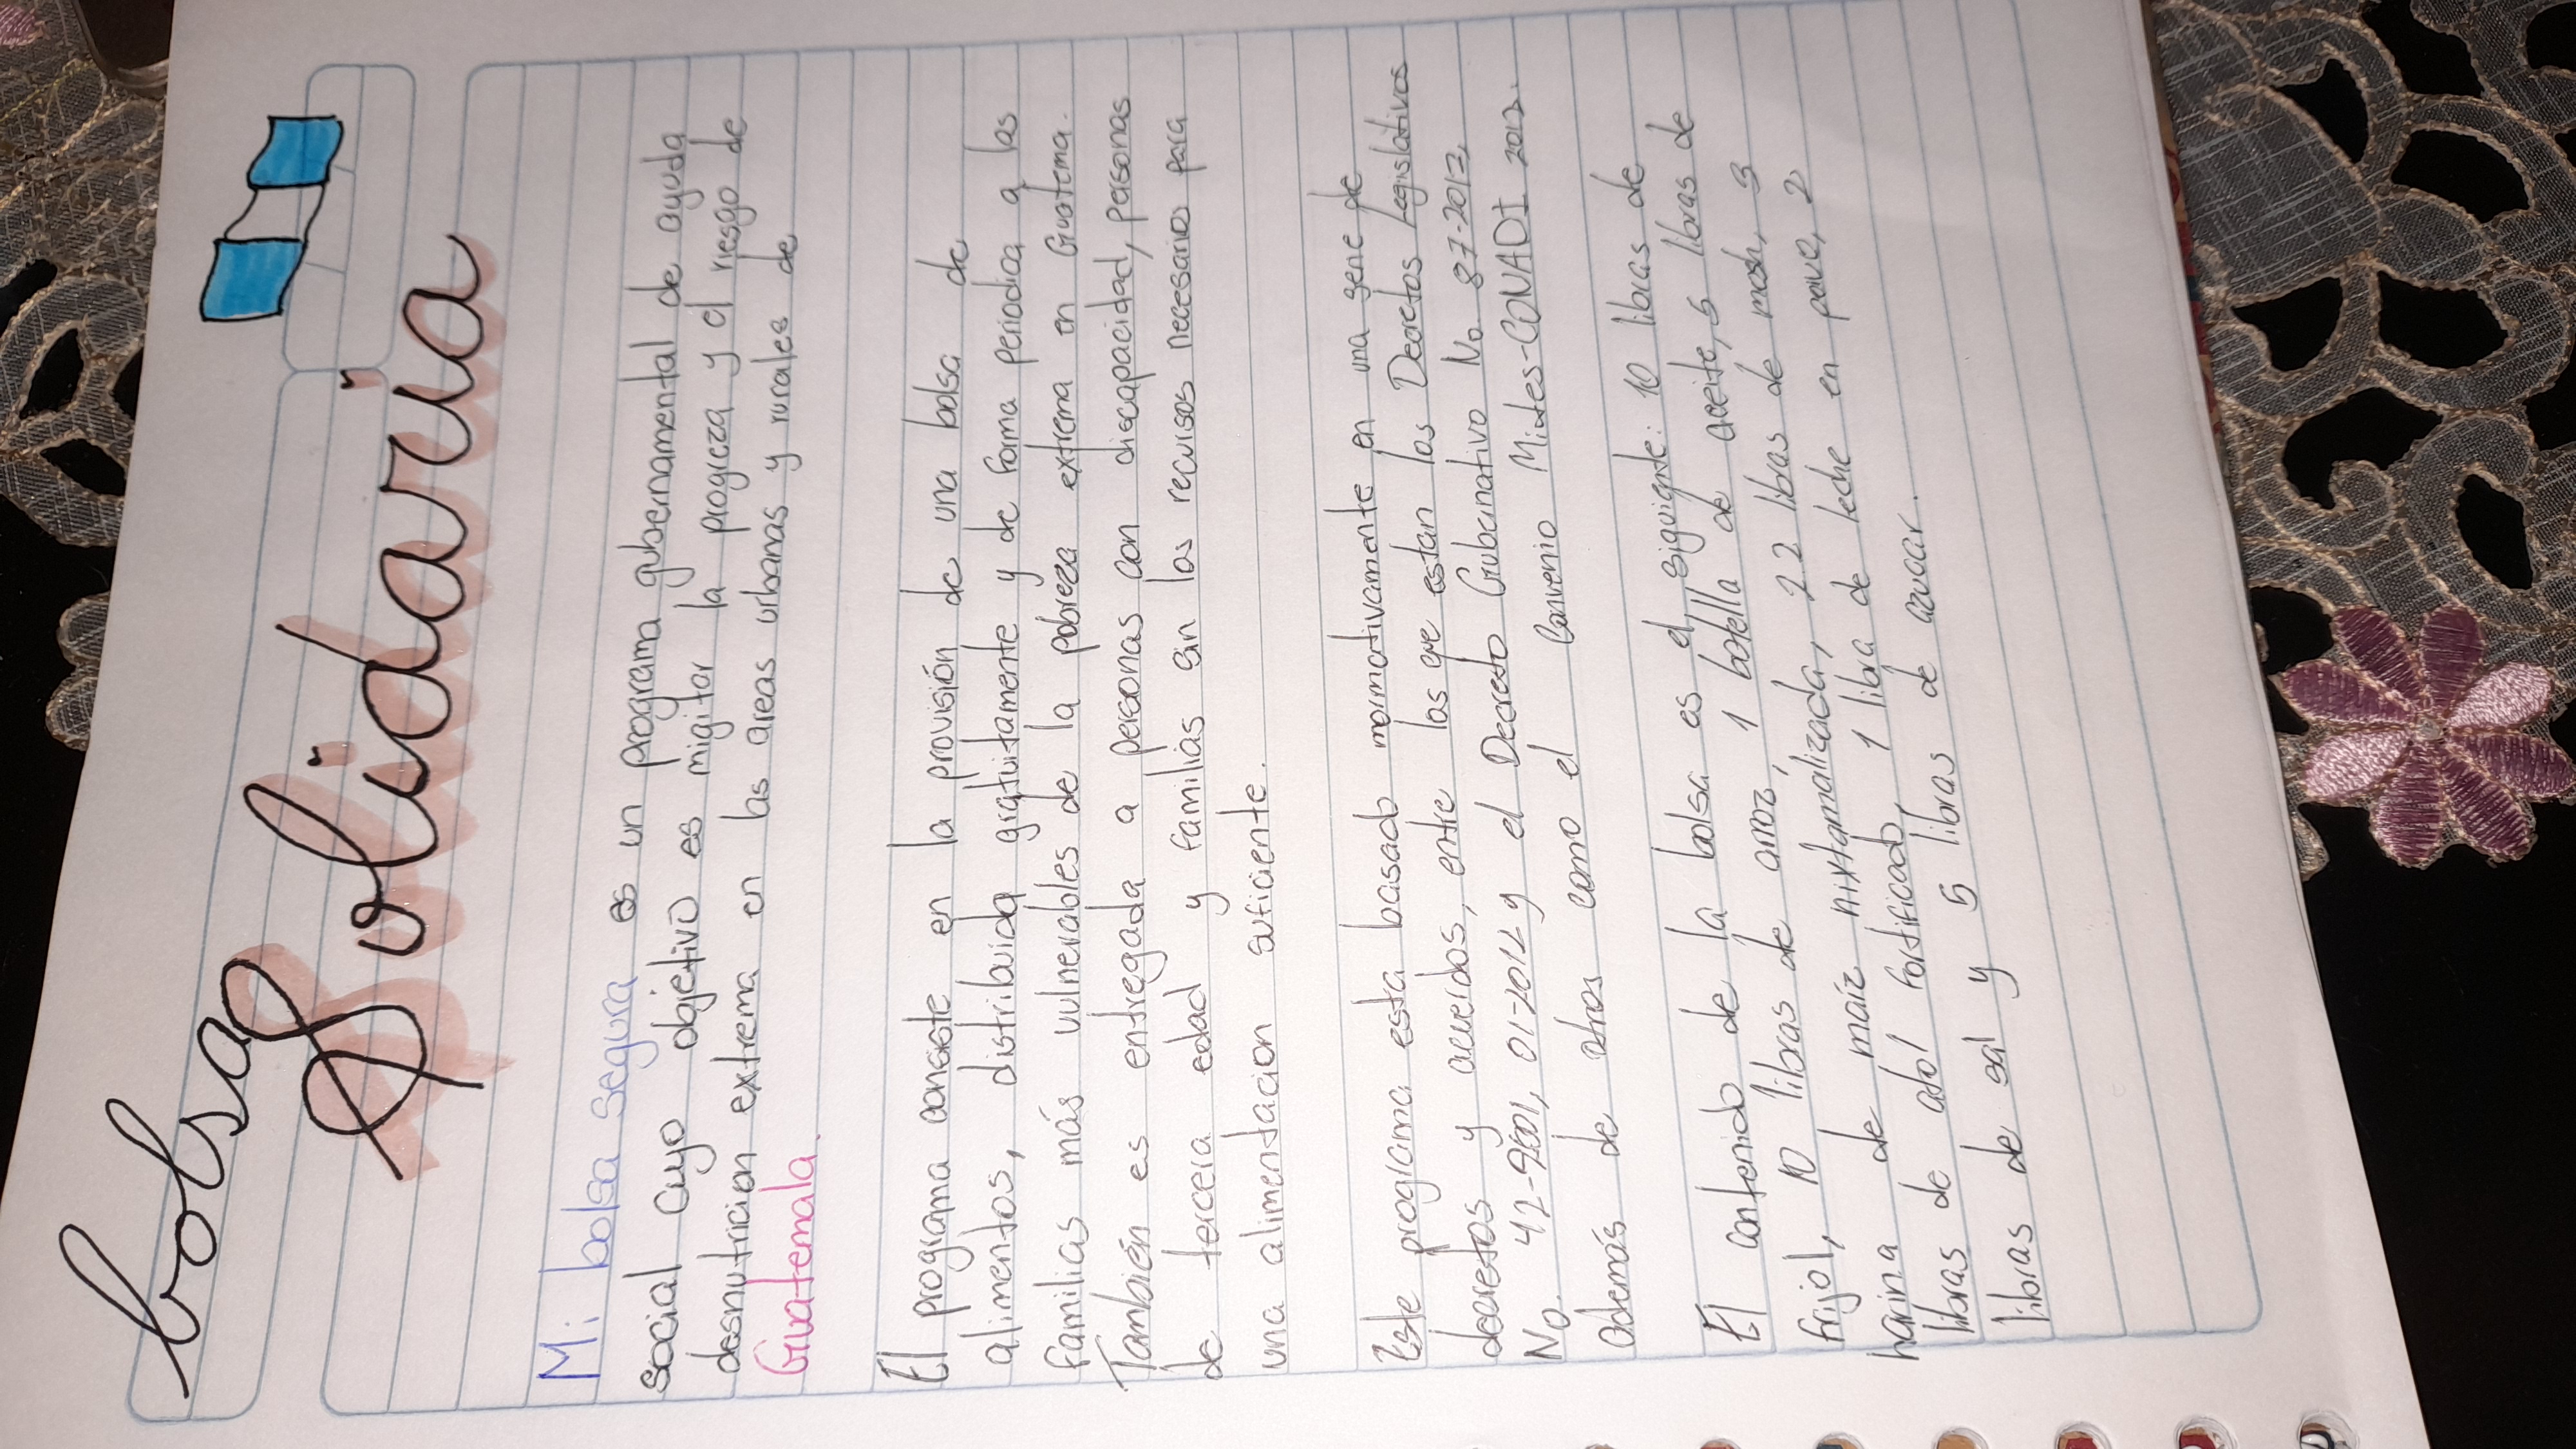 bolsa
Solidaria
Mi bolsa segura es un programa gubernamental de ayuda
social cuyo objetivo es migitar la progreza y el riesgo de
desnutricion extrema en las areas urbanas y rurales de
Guatemala.
El programa consiste en la provisión de una bolsa de
alimentos, distribuida gratuitamente y de forma periodica a las
familias más vulnerables de la pobreza extrema en Guatema.
También es entregada a personas con discapacidad, personas
de tercera edad y familias sin los recursos necesarios para
una alimentacion suficiente.
Este programa esta basado mormotivamente en una serie de
decretos y acuerdos, entre los que estan los Decretos Legislativos
No. 42-9001, 01-2012 y el Decreto Gubernativo No. 87-2012,
además de otros como el Convenio Mides-CONADI 2012.
El contenido de la bolsa es el siguiente: 10 libras de
frijol, 10 libras de arroz, 1 botella de aceite, 5 libras de
harina de maíz nixtamalizada, 22 libras de mosh, 3
libras de atol fortificado, 1 libra de leche en polvo, 2
libras de sal y 5 libras de azucar.